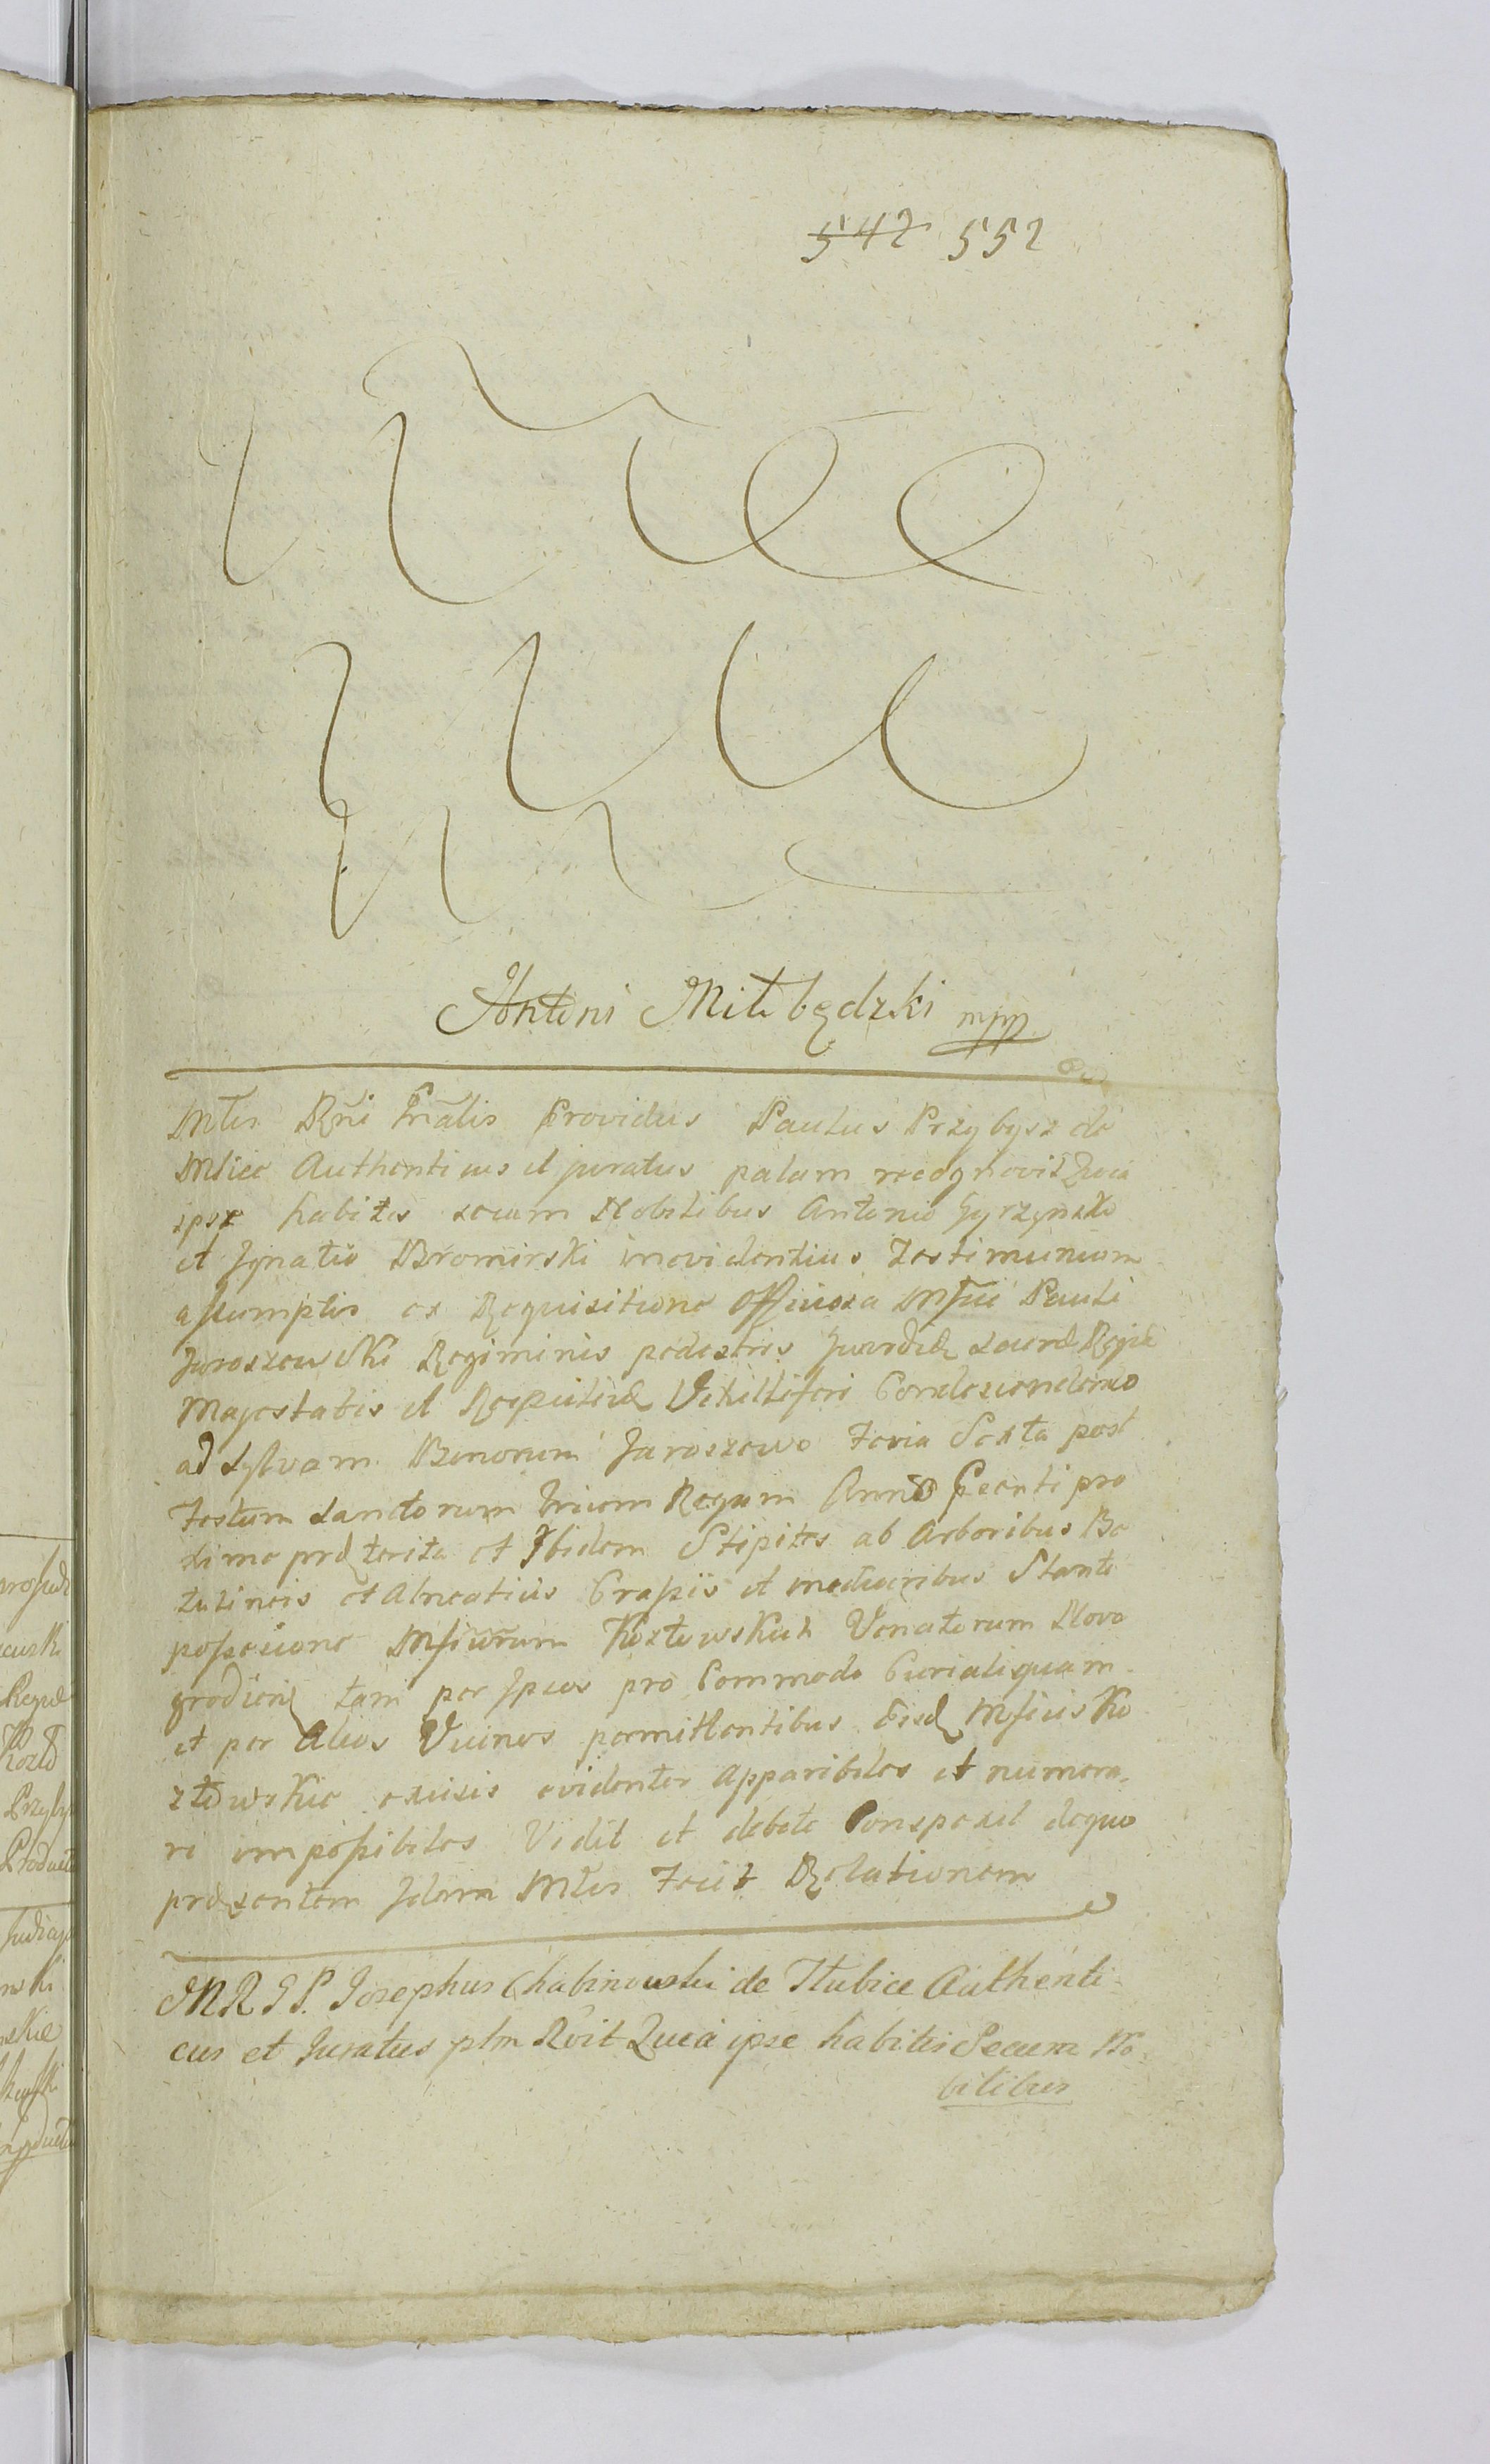 542 552
Antoni Miłobędzki mpp
Mlis Rni Gnalis Providus Paulus Przybysz de
Msice Authenticus et juratus palam recognovit Quia
ipse habitis secum Nobilibus Antonio
et Ignatio Bromirski in evidentius Testimonium
assumptis ex Requisitione Officiosa Msfici Pauli
Jaroszewski Regiminis pedestris Gwardiæ Sacræ Regiæ
Majestatis et Reipublicæ Vexilliferi Condescendendo
ad Sylvam Bonorum Jaroszewo Feria Sexta post
Festum Sanctorum trium Regum Anno Pcenti pro
xime præterita et Ibidem Stipites ab Arboribus Be
tulineis et Alneatiis Crassis et mediocribus Stante
possesione Msficorum Kozłowskich Venatorum Novo
grodien tam per Ipsos pro Commodo Curiali quam
et per Alios Vicinos permittentibus Eisd Msficis Ko
złowskie exicis evidenter apparibiles et numera
ri impossibiles Vidit et debite Conspexit de quo
præsentem Idem Mlis Fecit Relationem
M R G P. Josephus Chabinowski de Słubice Authenti
cus et Juratus plm Rvit Quia ipse habitis Secum No
bilibus